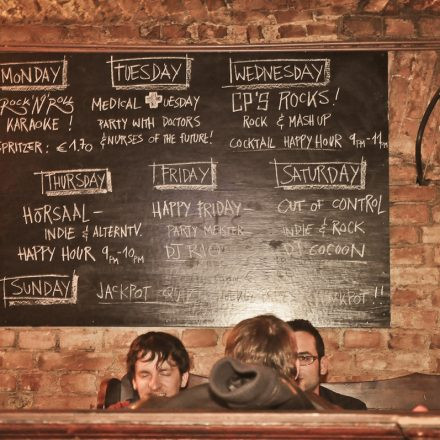 MONDAY
ROCK'N'ROLL
KARAOKE!
SPRITZER: €1.70
TUESDAY
MEDICAL TUESDAY
PARTY WITH DOCTORS
& NURSES OF THE FUTURE!
WEDNESDAY
CP'S ROCKS!
ROCK & MASH UP
COCKTAIL HAPPY HOUR 9PM-11PM
THURSDAY
HÖRSAAL -
INDIE & ALTERNTV.
HAPPY HOUR 9PM-10PM
FRIDAY
HAPPY FRIDAY -
PARTY MEISTER
DJ
SATURDAY
OUT OF CONTROL
INDIE & ROCK
DJ COCOON
SUNDAY
JACKPOT JACKPOT!!